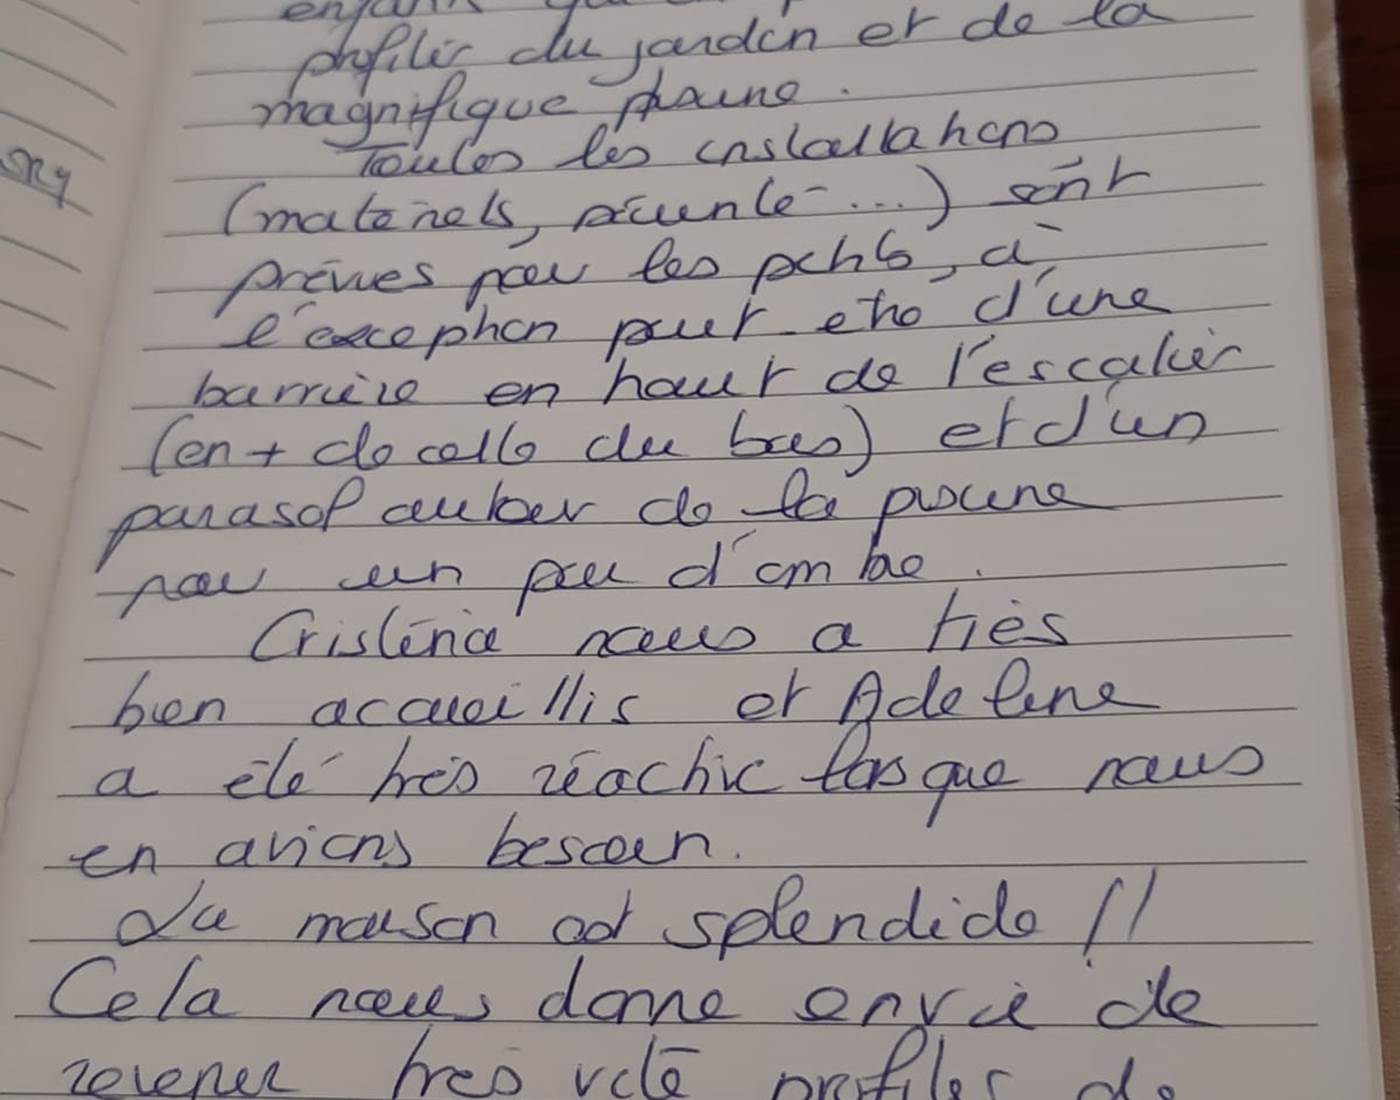 profiter du jardin et de la
magnifique piscine.
Toutes les installations
(materiels, sécurité...) sont
prévues pour les petits, à
l'exception peut etre d'une
barrière en haut de l'escalier
(en + de celle du bas) et d'un
parasol autour de la piscine
pour un peu d'ombre.
Cristina nous a très
bien accueillis et Adeline
a été très réactive lorsque nous
en avions besoin.
La maison est splendide !!
Cela nous donne envie de
revenir très vite profiter de